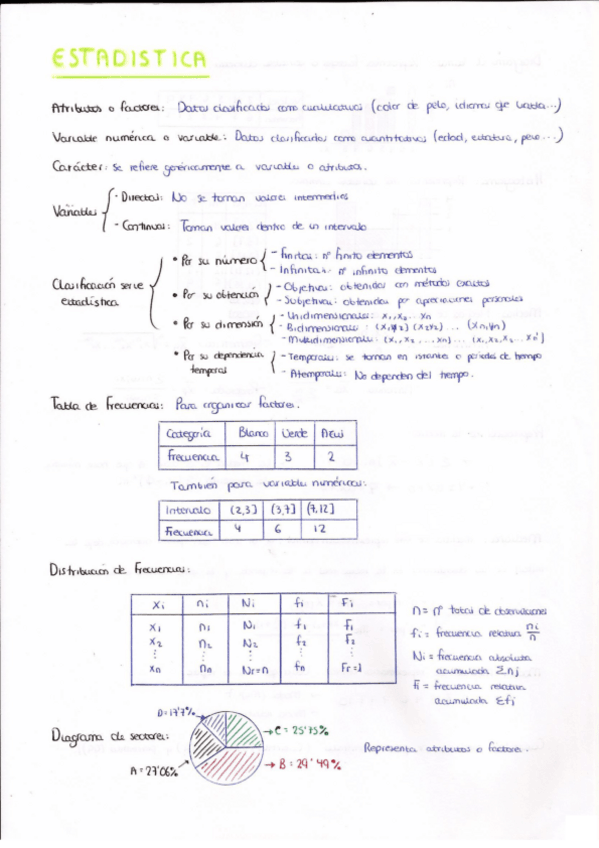 ESTADISTICA
Atributos o factores: Datos clasificados como cualitativos (color de pelo, idiomas que habla...)
Variable numérica o variable: Datos clasificados como cuantitativos (edad, estatura, peso...)
Carácter: Se refiere genéricamente a variable o atributos.
Variables
- Directas: No se toman valores intermedios
- Continuas: Toman valores dentro de un intervalo
Clasificación serie estadística
• Por su número
- Finitas: nº finito elementos
- Infinitas: nº infinito elementos
• Por su obtención
- Objetivas: obtenidas con métodos exactos
- Subjetivas: obtenidas por apreciaciones personales
• Por su dimensión
- Unidimensionales: x₁, x₂ ... xn
- Bidimensionales: (x₁y₁) (x₂y₂) ... (xn, yn)
- Multidimensionales: (x₁, x₂, ... xn) ... (x₁, x₂, x₃... xn')
• Por su dependencia temporal
- Temporales: se toman en instantes o periodos de tiempo
- Atemporales: No dependen del tiempo.
Tabla de Frecuencias: Para organizar factores.
Categoría Blanco Verde Azul
Frecuencia 4 3 2
También para variables numéricas:
Intervalo (2,3] (3,7] (7,12]
Frecuencia 4 6 12
Distribución de Frecuencias:
xi ni Ni fi Fi
x₁ n₁ N₁ f₁ F₁
x₂ n₂ N₂ f₂ F₂
⋮ ⋮ ⋮ ⋮ ⋮
xn nn Nr=n fn Fr=1
n = nº total de observaciones
fi = frecuencia relativa ni/n
Ni = frecuencia absoluta
acumulada Σnj
Fi = frecuencia relativa
acumulada Σfj
Diagrama de sectores:
D=17'7%
C = 25'75%
A = 27'06%
B = 29'49%
Representa atributos o factores.